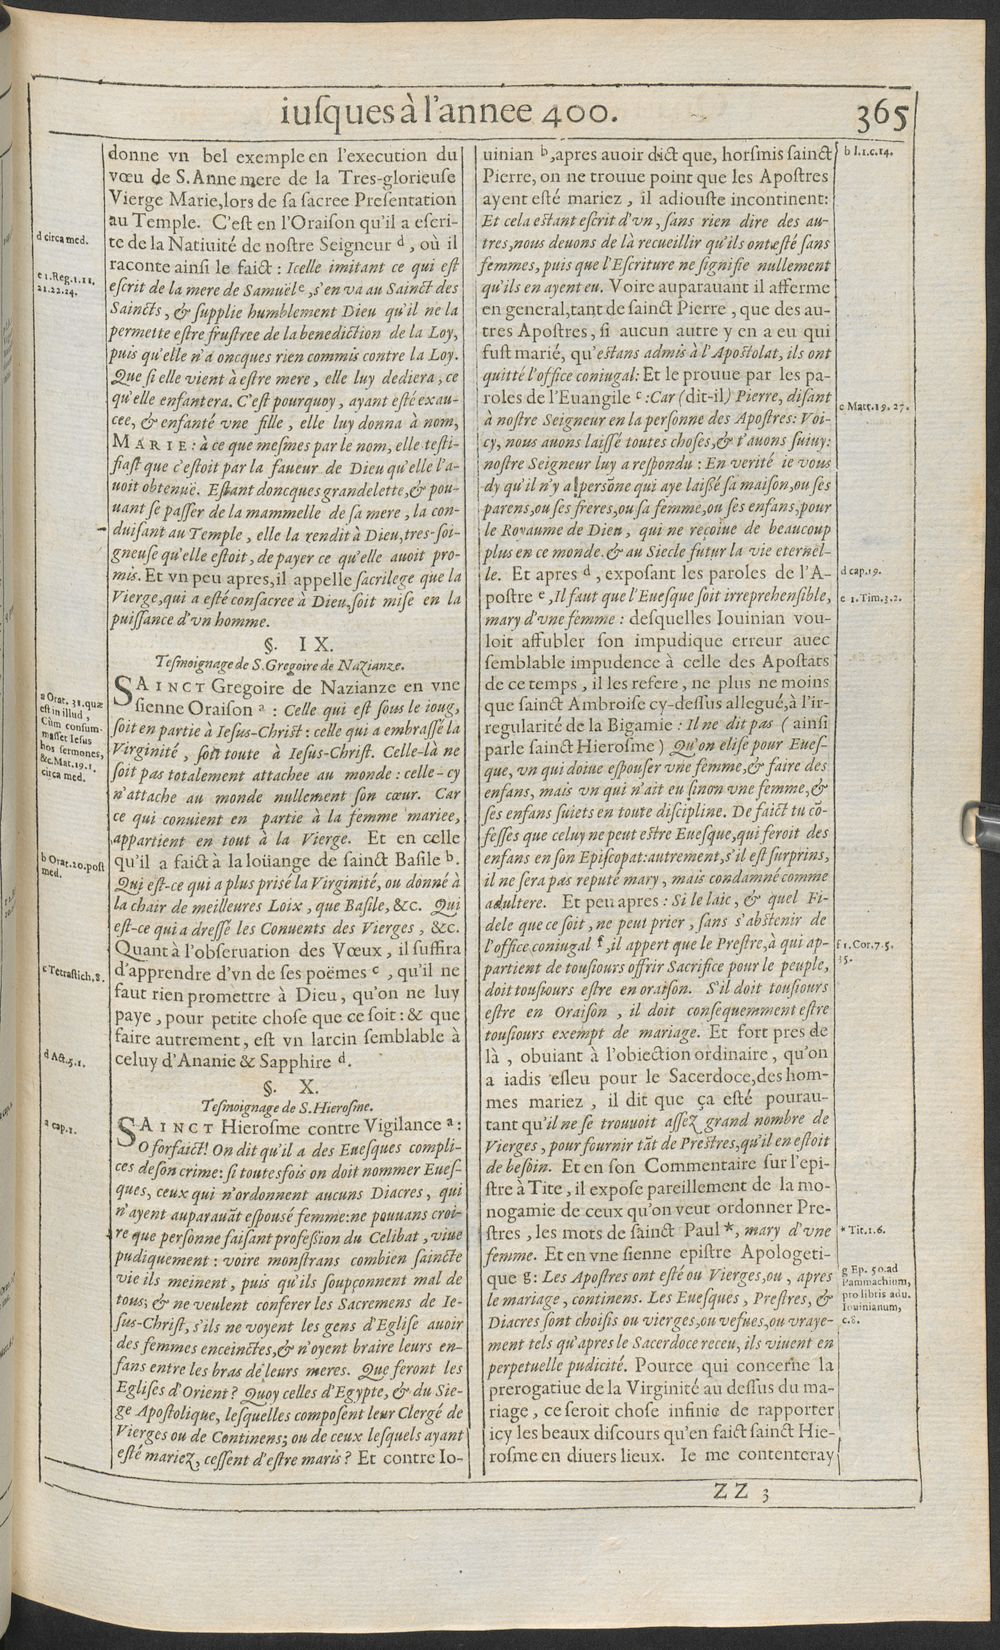 iuſques à l'annee 400.
365
donne vn bel exemple en l'execution du
vœu de S. Anne mere de la Tres-glorieuſe
Vierge Marie, lors de ſa ſacree Preſentation
au Temple. C'eſt en l'Oraiſon qu'il a eſcri-
te de la Natiuité de noſtre Seigneur d, où il
raconte ainſi le faict : Icelle imitant ce qui eſt
eſcrit de la mere de Samuël e, s'en va au Sainct des
Saincts, & ſupplie humblement Dieu qu'il ne la
permette eſtre fruſtree de la benediction de la Loy,
puis qu'elle n'a oncques rien commis contre la Loy.
Que ſi elle vient à eſtre mere, elle luy dediera, ce
qu'elle enfantera. C'eſt pourquoy, ayant eſté exau-
cee, & enfanté vne fille, elle luy donna à nom,
MARIE : à ce que meſmes par le nom, elle teſti-
fiaſt que c'eſtoit par la faueur de Dieu qu'elle l'a-
uoit obtenuë. Eſtant doncques grandelette, & pou-
uant ſe paſſer de la mammelle de ſa mere, la con-
duiſant au Temple, elle la rendit à Dieu, tres-ſoi-
gneuſe qu'elle eſtoit, de payer ce qu'elle auoit pro-
mis. Et vn peu apres, il appelle ſacrilege que la
Vierge, qui a eſté conſacree à Dieu, ſoit miſe en la
puiſſance d'vn homme.
§. IX.
Teſmoignage de S. Gregoire de Nazianze.
SAINCT Gregoire de Nazianze en vne
ſienne Oraiſon a : Celle qui eſt ſous le ioug,
ſoit en partie à Ieſus-Chriſt : celle qui a embraſſé la
Virginité, ſoit toute à Ieſus-Chriſt. Celle-là ne
ſoit pas totalement attachee au monde : celle-cy
n'attache au monde nullement ſon cœur. Car
ce qui conuient en partie à la femme mariee,
appartient en tout à la Vierge. Et en celle
qu'il a faict à la loüange de ſainct Baſile b.
Qui eſt-ce qui a plus priſé la Virginité, ou donné à
la chair de meilleures Loix, que Baſile, &c. Qui
eſt-ce qui a dreſſé les Conuents des Vierges, &c.
Quant à l'obſeruation des Vœux, il ſuffira
d'apprendre d'vn de ſes poëmes c, qu'il ne
faut rien promettre à Dieu, qu'on ne luy
paye, pour petite choſe que ce ſoit : & que
faire autrement, eſt vn larcin ſemblable à
celuy d'Ananie & Sapphire d.
§. X.
Teſmoignage de S. Hieroſme.
SAINCT Hieroſme contre Vigilance a :
O forfaict! On dit qu'il a des Eueſques compli-
ces de ſon crime : ſi toutesfois on doit nommer Eueſ-
ques, ceux qui n'ordonnent aucuns Diacres, qui
n'ayent auparauāt eſpouſé femme: ne pouuans croi-
re que perſonne faiſant profeſſion du Celibat, viue
pudiquement : voire monſtrans combien ſaincte
vie ils meinent, puis qu'ils ſoupçonnent mal de
tous; & ne veulent conferer les Sacremens de Ie-
ſus-Chriſt, s'ils ne voyent les gens d'Egliſe auoir
des femmes enceinctes, & n'oyent braire leurs en-
fans entre les bras de leurs meres. Que feront les
Egliſes d'Orient? Quoy celles d'Egypte, & du Sie-
ge Apoſtolique, leſquelles compoſent leur Clergé de
Vierges ou de Continens; ou de ceux leſquels ayant
eſté mariez, ceſſent d'eſtre maris? Et contre Io-
d circa med.
e 1. Reg. 1. 11.
21. 22. 24.
a Orat. 31. quæ
eſt in illud,
Cùm conſum-
maſſet Ieſus
hos ſermones,
&c. Mat. 19. 1.
circa med.
b Orat. 20. poſt
med.
c Tetraſtich, 8.
d Act. 5. 1.
a cap. 1.
uinian b, apres auoir dict que, horſmis ſainct
Pierre, on ne trouue point que les Apoſtres
ayent eſté mariez, il adiouſte incontinent:
Et cela eſtant eſcrit d'vn, ſans rien dire des au-
tres, nous deuons de là recueillir qu'ils ont eſté ſans
femmes, puis que l'Eſcriture ne ſignifie nullement
qu'ils en ayent eu. Voire auparauant il afferme
en general, tant de ſainct Pierre, que des au-
tres Apoſtres, ſi aucun autre y en a eu qui
fuſt marié, qu'eſtans admis à l'Apoſtolat, ils ont
quitté l'office coniugal: Et le prouue par les pa-
roles de l'Euangile c : Car (dit-il) Pierre, diſant
à noſtre Seigneur en la perſonne des Apoſtres: Voi-
cy, nous auons laiſſé toutes choſes, & t'auons ſuiuy:
noſtre Seigneur luy a reſpondu : En verité ie vous
dy qu'il n'y a perſōne qui aye laiſſé ſa maiſon, ou ſes
parens, ou ſes freres, ou ſa femme, ou ſes enfans, pour
le Royaume de Dieu, qui ne reçoiue de beaucoup
plus en ce monde, & au Siecle futur la vie eternel-
le. Et apres d, expoſant les paroles de l'A-
poſtre e, Il faut que l'Eueſque ſoit irreprehenſible,
mary d'vne femme : deſquelles Iouinian vou-
loit affubler ſon impudique erreur auec
ſemblable impudence à celle des Apoſtats
de ce temps, il les refere, ne plus ne moins
que ſainct Ambroiſe cy-deſſus allegué, à l'ir-
regularité de la Bigamie : Il ne dit pas (ainſi
parle ſainct Hieroſme) Qu'on eliſe pour Eueſ-
que, vn qui doiue eſpouſer vne femme, & faire des
enfans, mais vn qui n'ait eu ſinon vne femme, &
ſes enfans ſuiets en toute diſcipline. De faict tu cō-
feſſes que celuy ne peut eſtre Eueſque, qui feroit des
enfans en ſon Epiſcopat: autrement, s'il eſt ſurprins,
il ne ſera pas reputé mary, mais condamné comme
adultere. Et peu apres : Si le laic, & quel Fi-
dele que ce ſoit, ne peut prier, ſans s'abſtenir de
l'office coniugal f, il appert que le Preſtre, à qui ap-
partient de touſiours offrir Sacrifice pour le peuple,
doit touſiours eſtre en oraiſon. S'il doit touſiours
eſtre en Oraiſon, il doit conſequemment eſtre
touſiours exempt de mariage. Et fort pres de
là, obuiant à l'obiection ordinaire, qu'on
a iadis eſleu pour le Sacerdoce, des hom-
mes mariez, il dit que ça eſté pourau-
tant qu'il ne ſe trouuoit aſſez grand nombre de
Vierges, pour fournir tāt de Preſtres, qu'il en eſtoit
de beſoin. Et en ſon Commentaire ſur l'epi-
ſtre à Tite, il expoſe pareillement de la mo-
nogamie de ceux qu'on veut ordonner Pre-
ſtres, les mots de ſainct Paul *, mary d'vne
femme. Et en vne ſienne epiſtre Apologeti-
que g : Les Apoſtres ont eſté ou Vierges, ou, apres
le mariage, continens. Les Eueſques, Preſtres, &
Diacres ſont choiſis ou vierges, ou vefues, ou vraye-
ment tels qu'apres le Sacerdoce receu, ils viuent en
perpetuelle pudicité. Pource qui concerne la
prerogatiue de la Virginité au deſſus du ma-
riage, ce ſeroit choſe infinie de rapporter
icy les beaux diſcours qu'en faict ſainct Hie-
roſme en diuers lieux. Ie me contenteray
b l. 1. c. 14.
c Matt. 19. 27.
d cap. 19.
e 1. Tim. 3. 2.
f 1. Cor. 7. 5.
35.
* Tit. 1. 6.
g Ep. 50. ad
Pammachium,
pro libris adu.
Iouinianum,
c. 8.
ZZ 3